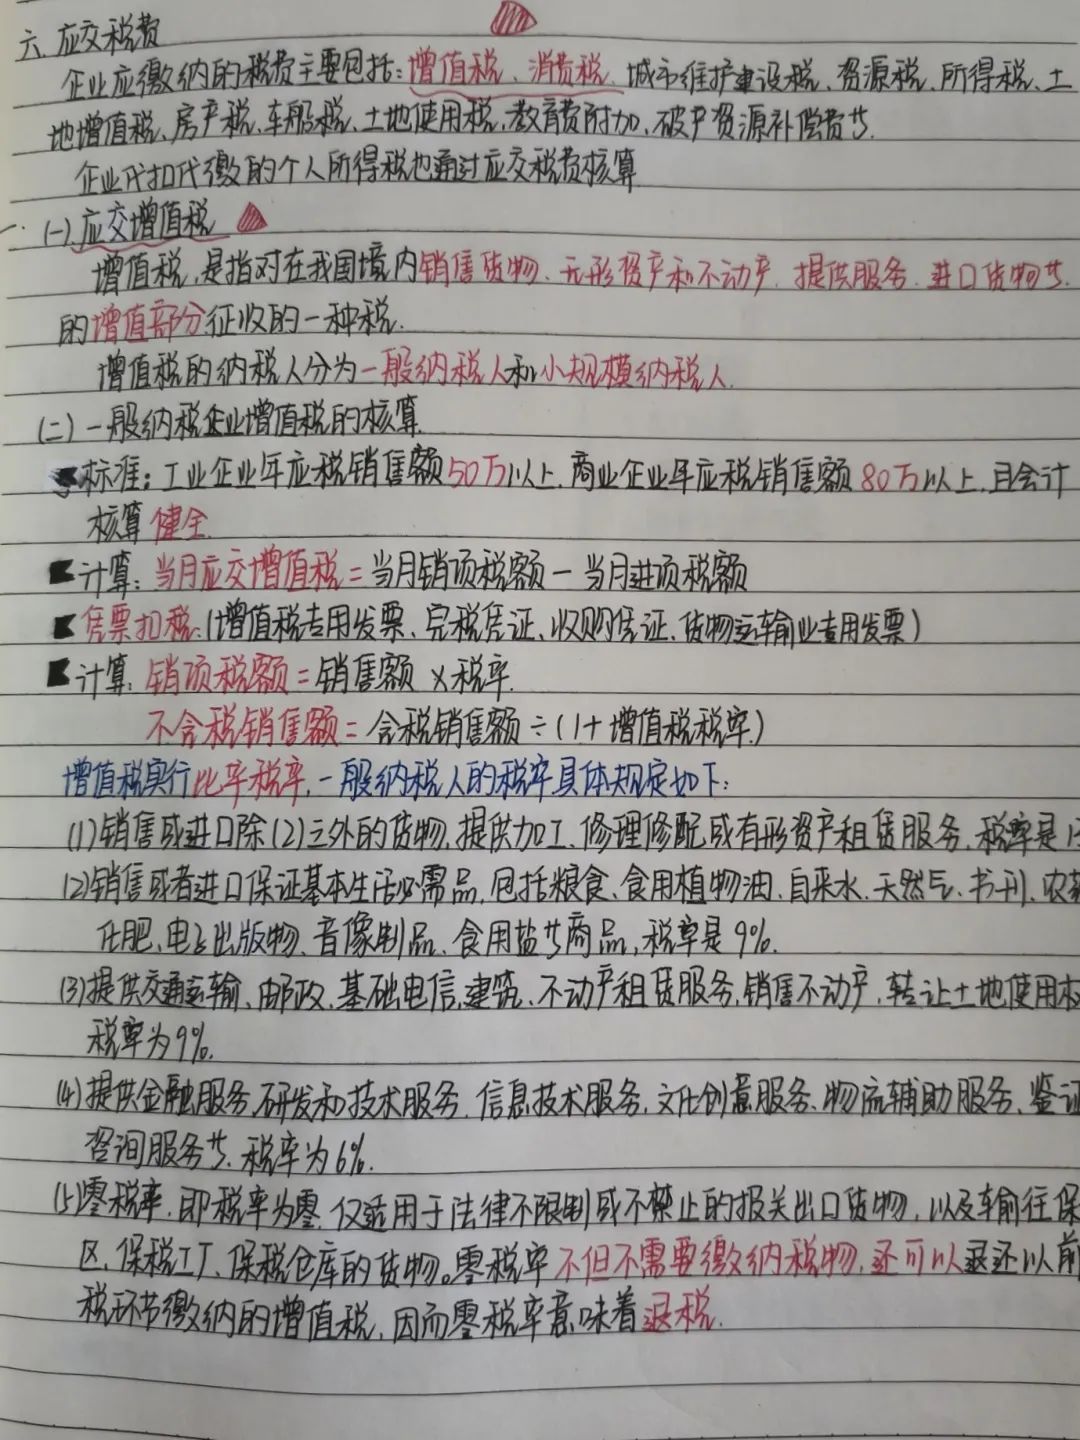 六.应交税费
企业应缴纳的税费主要包括:增值税、消费税、城市维护建设税、资源税、所得税、土
地增值税、房产税、车船税、土地使用税、教育费附加、破产资源补偿费等.
企业代扣代缴的个人所得税也通过应交税费核算
(一).应交增值税
增值税,是指对在我国境内销售货物、无形资产和不动产、提供服务、进口货物等.
的增值部分征收的一种税.
增值税的纳税人分为一般纳税人和小规模纳税人.
(二)一般纳税企业增值税的核算.
标准:工业企业年应税销售额50万以上,商业企业年应税销售额80万以上,且会计
核算健全.
计算:当月应交增值税=当月销项税额-当月进项税额
凭票扣税.(增值税专用发票、完税凭证、收购凭证、货物运输业专用发票)
计算:销项税额=销售额×税率.
不含税销售额=含税销售额÷(1+增值税税率.)
增值税实行比率税率,一般纳税人的税率具体规定如下:
(1)销售或进口除(2)之外的货物,提供加工、修理修配或有形资产租赁服务,税率是
(2)销售或者进口保证基本生活必需品,包括粮食、食用植物油、自来水、天然气、书刊、农
化肥、电子出版物、音像制品、食用盐等商品,税率是9%.
(3)提供交通运输、邮政、基础电信,建筑、不动产租赁服务,销售不动产,转让土地使用权
税率为9%.
(4)提供金融服务、研发和技术服务、信息技术服务、文化创意服务、物流辅助服务、鉴证
咨询服务等.税率为6%.
(5)零税率,即税率为零.仅适用于法律不限制或不禁止的报关出口货物,以及输往保
区、保税工厂、保税仓库的货物。零税率不但不需要缴纳税物,还可以退还以前
税环节缴纳的增值税,因而零税率意味着退税.